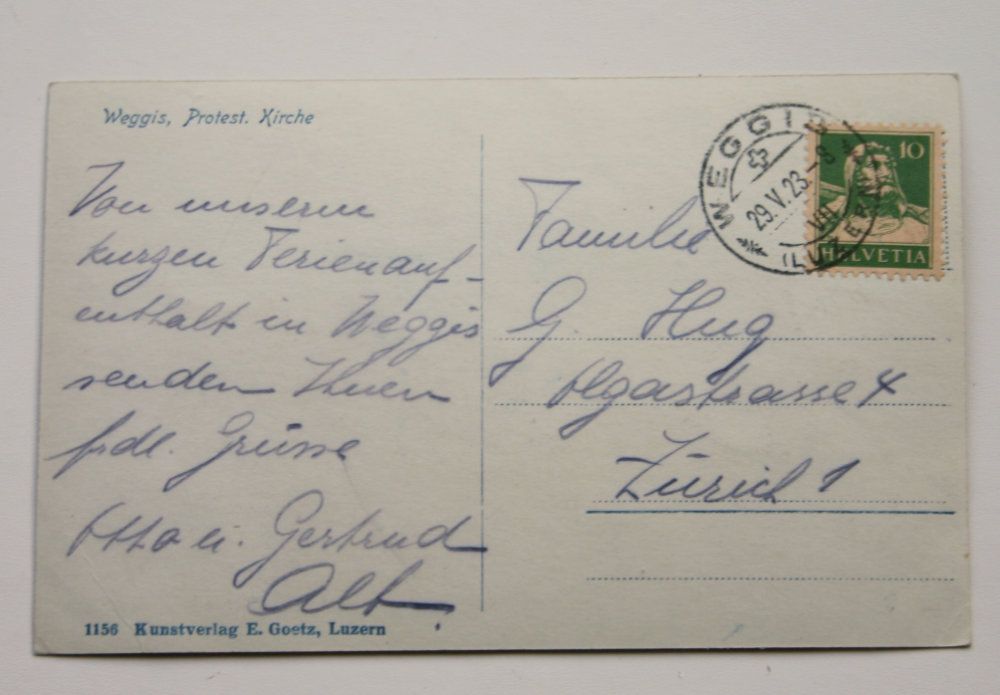 Weggis, Protest. Kirche
Von unserm
kurzen Ferienauf-
enthalt in Weggis
senden Ihnen
frdl. Grüsse
Otto u. Gertrud
Alt
1156 Kunstverlag E. Goetz, Luzern
WEGGIS
29.V.23.-8
VII
(LUZERN)
10
HELVETIA
Familie
G. Hug
Olgastrasse 4
Zürich 1